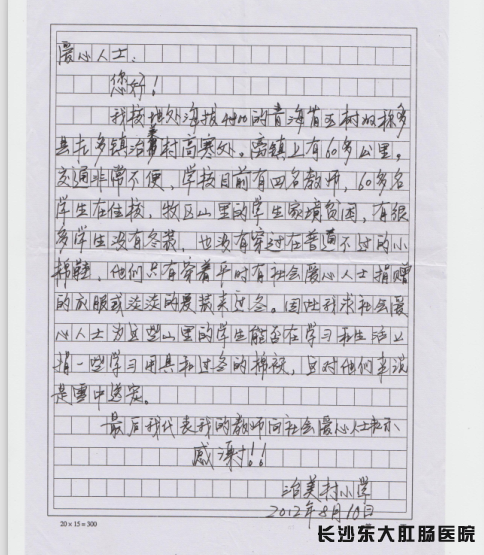 爱心人士：
您好！
我校地处海拔4400的青海省玉树州称多
县扎多镇治美村高寒处。离镇上有60多公里。
交通非常不便，学校目前有四名教师，60多名
学生在住校，牧区山里的学生家境贫困，有很
多学生没有冬装，也没有穿过在普通不过的小
棉鞋，他们只有穿着平时有社会爱心人士捐赠
的衣服或淡淡的夏装来过冬。因此我求社会爱
心人士为这些山里的学生能否在学习和生活上
捐一些学习用具和过冬的棉被，这对他们来说
是雪中送炭。
最后我代表我的教师向社会爱心人士表示
感谢!!
治美村小学
2012年8月10日
20×15=300
长沙东大肛肠医院